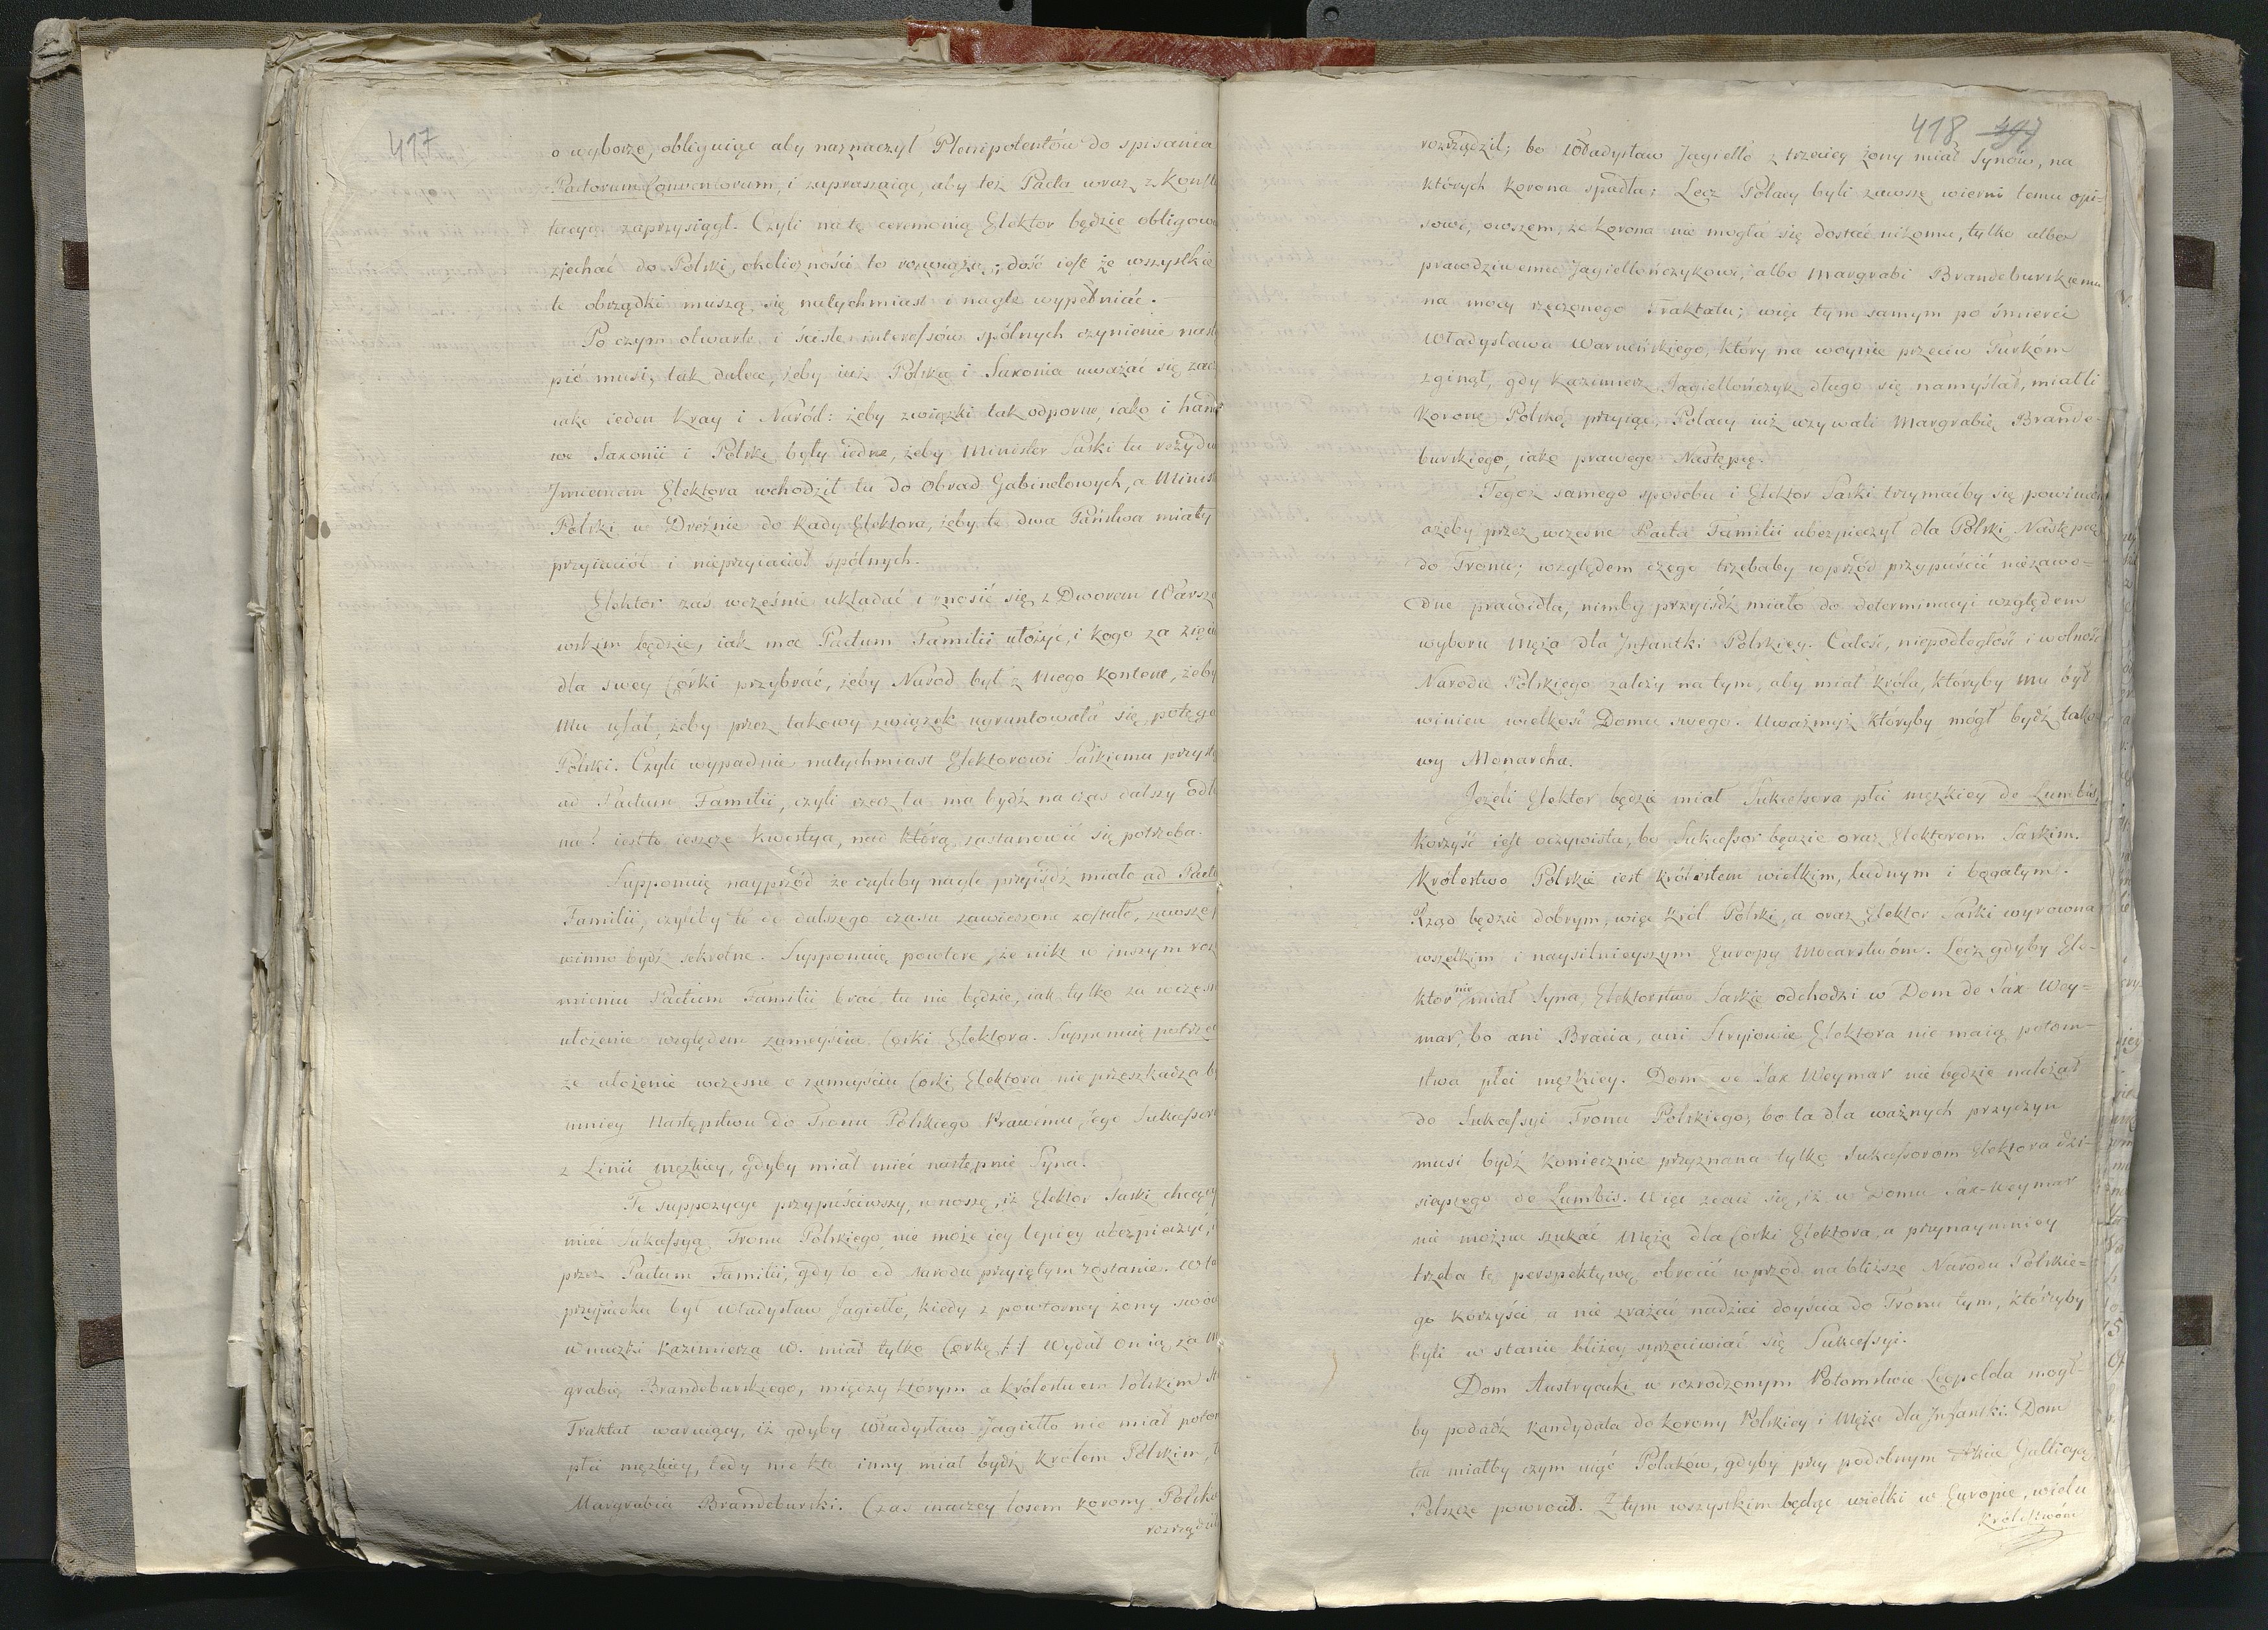 417
o wyborze, obliguiąc aby naznaczył Plenipotentów do spisania
Pactorum Conventorum, i zapraszaiąc, aby też Pacta wraz z Konsty
tucyą zaprzysiągł. Czyli na tę ceremonią Elektor będzie obligowa
zjechać do Polski, okoliczności to rozwiążą; dość iest że wszystkie
te obrządki muszą się natychmiast i nagle wypełniać.
Po czym otwarte i ścisłe interessów spólnych czynienie nastą
pić musi, tak dalece, żeby iuż Polska i Saxonia uważać się zacz
iako ieden Kray i Naród: żeby związki tak odporne, iako i hand
we Saxonii i Polski były iedne, żeby Minister Saski tu rezydu
Jmieniem Elektora wchodził tu do Obrad Gabinetowych, a Minist
Polski w Dreźnie do Rady Elektora, żeby te dwa Państwa miały
przyiaciół i nieprzyiaciół spólnych.
Elektor zaś wcześnie układać i znosić się z Dworem Warsza
wskim będzie, iak ma Pactum Familii ułożyć, i kogo za zięcia
dla swey Córki przybrać, żeby Naród był z niego kontent, żeby
mu ufał, żeby przez takowy związek ugruntowała się potęga
Polski. Czyli wypadnie natychmiast Elektorowi Saskiemu przystą
ad Pactum Familii, czyli rzecz ta ma bydź na czas dalszy odło
na? iest to ieszcze kwestya, nad którą zastanowić się potrzeba.
Supponuię nayprzód że czyliby nagle przyiśdź miało ad Pactu
Familii, czyliby to do dalszego czasu zawieszone zostało, zawsze p
winno bydź sekretne. Supponuię powtóre, że nikt w inszym roz
mieniu Pactum Familii brać tu nie będzie, iak tylko za wczesn
ułożenie względem zamęścia Córki Elektora. Supponuię potrzec
że ułożenie wczesne o zamęściu Córki Elektora nie przeszkadza by
mniey Następstwu do Tronu Polskiego Prawemu Jego Sukcessoro
z Linii męzkiey, gdyby miał mieć następnie Syna.
Te suppozycye przypuściwszy, wnoszę, iż Elektor Saski chcący
mieć Sukcessyą Tronu Polskiego nie może iey lepiey ubezpieczyć, i
przez Pactum Familii, gdy to od Narodu przyiętym zostanie. W ta
przypadku był Władysław Jagiełło, kiedy z powtorney żony swoi
wnuczki Kazimierza W. miał tylko Córkę. Wydał on ią za M
grabię Brandeburskiego, między którym a Królestwem Polskim st
Traktat waruiący, iż gdyby Władysław Jagiełło nie miał potom
płci męzkiey, tedy nie kto inny miał bydź Królem Polskim, ty
Margrabia Brandeburski. Czas inaczey losem Korony Polski
rozrządził
418 497
rozrządził; bo Władysław Jagiełło z trzeciey żony miał Synów, na
których Korona spadła; Lecz Polacy byli zawsze wierni temu opi-
sowi, owszem, że Korona nie mogła się dostać nikomu, tylko albo
prawdziwemu Jagiellończykowi, albo Margrabi Brandeburskiemu
na mocy rzeczonego Traktatu; więc tym samym po śmierci
Władysława Warneńskiego, który na woynie przeciw Turkóm
zginął, gdy Kazimierz Jagiellończyk długo się namyślał, miałli
Koronę Polską przyiąc, Polacy iuż wzywali Margrabię Brande-
burskiego, iako prawego Następcę.
Tegoż samego sposobu i Elektor Saski trzymaćby się powinien
ażeby przez wczesne Pacta Familii ubezpieczył dla Polski Następcę
do Tronu; względem czego trzebaby wprzód przypuścić niezawo-
dne prawidła, nimby przyiśdź miało do determinacyi względem
wyboru Męża dla Jnfantki Polskiey. Całość, niepodległość i wolność
Narodu Polskiego zależy na tym, aby miał Króla, któryby mu był
winien wielkość Domu swego. Uważmyż któryby mógł bydź tako-
wy Monarcha.
Jeżeli Elektor będzie miał Sukcessora płci męzkiey de Lumbis,
korzyść iest oczywista, bo Sukcessor będzie oraz Elektorem Saskim.
Królestwo Polskie iest Królestem wielkim, ludnym i bogatym.
Rząd będzie dobrym, więc Król Polski, a oraz Elektor Saski wyrowna
wszelkim i naysilnieyszym Europy Mocarstwóm. Lecz gdyby Ele-
ktor nie miał Syna, Elektorstwo Saskie odchodzi w Dom de Sax-Wey-
mar, bo ani Bracia, ani Stryiowie Elektora nie maią potom-
stwa płci męzkiey. Dom de Sax Weymar nie będzie należał
do Sukcessyi Tronu Polskiego, bo ta dla ważnych przyczyn
musi bydź koniecznie przyznana tylko Sukcessorom Elektora dzi-
sieyszego de Lumbis. Więc zdaie się, iż w Domu Sax-Weymar
nie można szukać Męża dla Córki Elektora, a przynaymniey
trzeba tę perspektywę obrócić wprzód na bliższe Narodu Polskie-
go korzyści a nie zrażać nadziei doyścia do Tronu tym, którzyby
byli w stanie bliżey sprzeciwiać się Sukcessyi.
Dom Austryacki w rozrodzonym Potomstwie Leopolda mógł-
by podadź Kandydata do Korony Polskiey i Męża dla Jnfantki. Dom
ten miałby czym uiąć Polaków, gdyby przy podobnym Akcie Gallicyą
Polszcze powrocił. Z tym wszystkim będąc wielki w Europie, wielu
Królestwóm